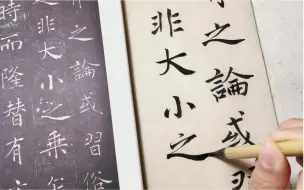 有之論或
非大小之
有之論或習俗
非大小之乘乍
時而隆替有